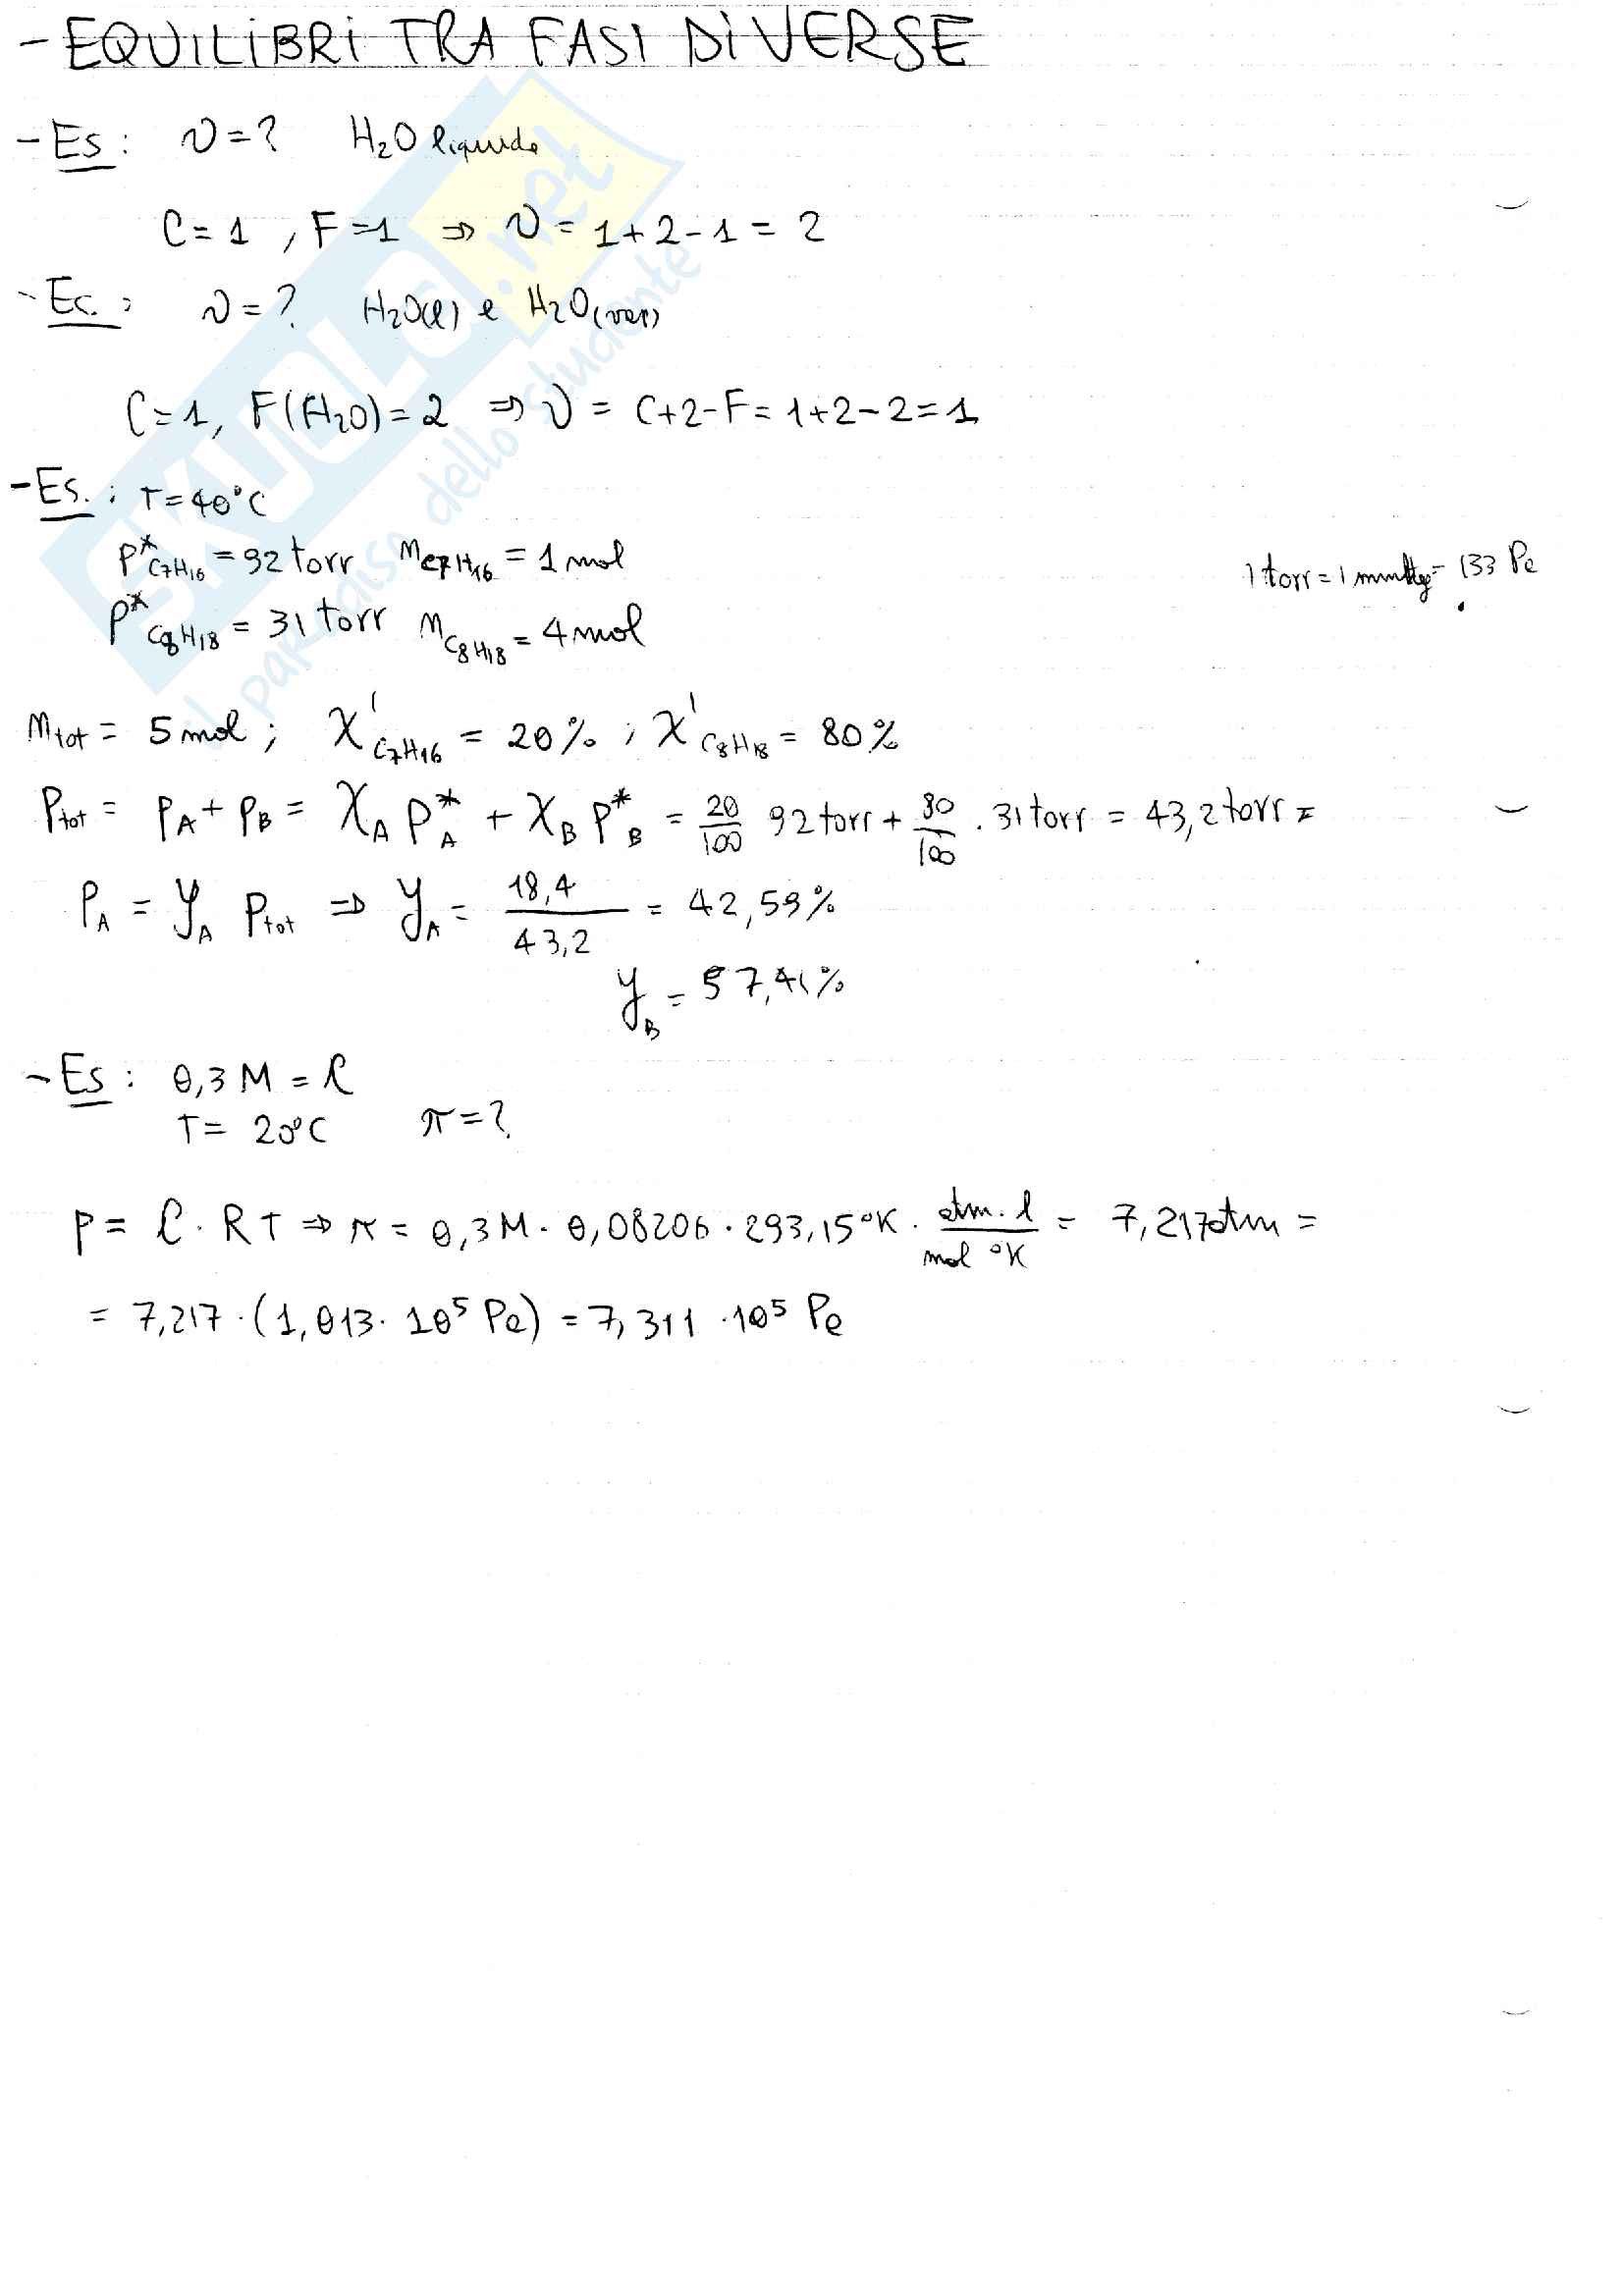 - EQUILIBRI TRA FASI DIVERSE
- Es: ν = ? H₂O liquida
C = 1 , F = 1 ⇒ ν = 1 + 2 - 1 = 2
- Es. : ν = ? H₂O(l) e H₂O(vap)
C = 1, F(H₂O) = 2 ⇒ ν = C + 2 - F = 1 + 2 - 2 = 1
- Es. : T = 40°C
P*C₇H₁₆ = 92 torr nC₇H₁₆ = 1 mol
1 torr = 1 mmHg = 133 Pa
P*C₈H₁₈ = 31 torr nC₈H₁₈ = 4 mol
ntot = 5 mol ; X'C₇H₁₆ = 20% ; X'C₈H₁₈ = 80%
Ptot = PA + PB = XA P*A + XB P*B = 20/100 92 torr + 80/100 · 31 torr = 43,2 torr =
PA = yA Ptot ⇒ yA = 18,4/43,2 = 42,59%
yB = 57,41%
- Es : 0,3 M = C
T = 20°C π = ?
P = C · R T ⇒ π = 0,3 M · 0,08206 · 293,15 °K · atm · l/mol °K = 7,217 atm =
= 7,217 · (1,013 · 10⁵ Pa) = 7,311 · 10⁵ Pa
SKUOLA.net
il paradiso dello studente